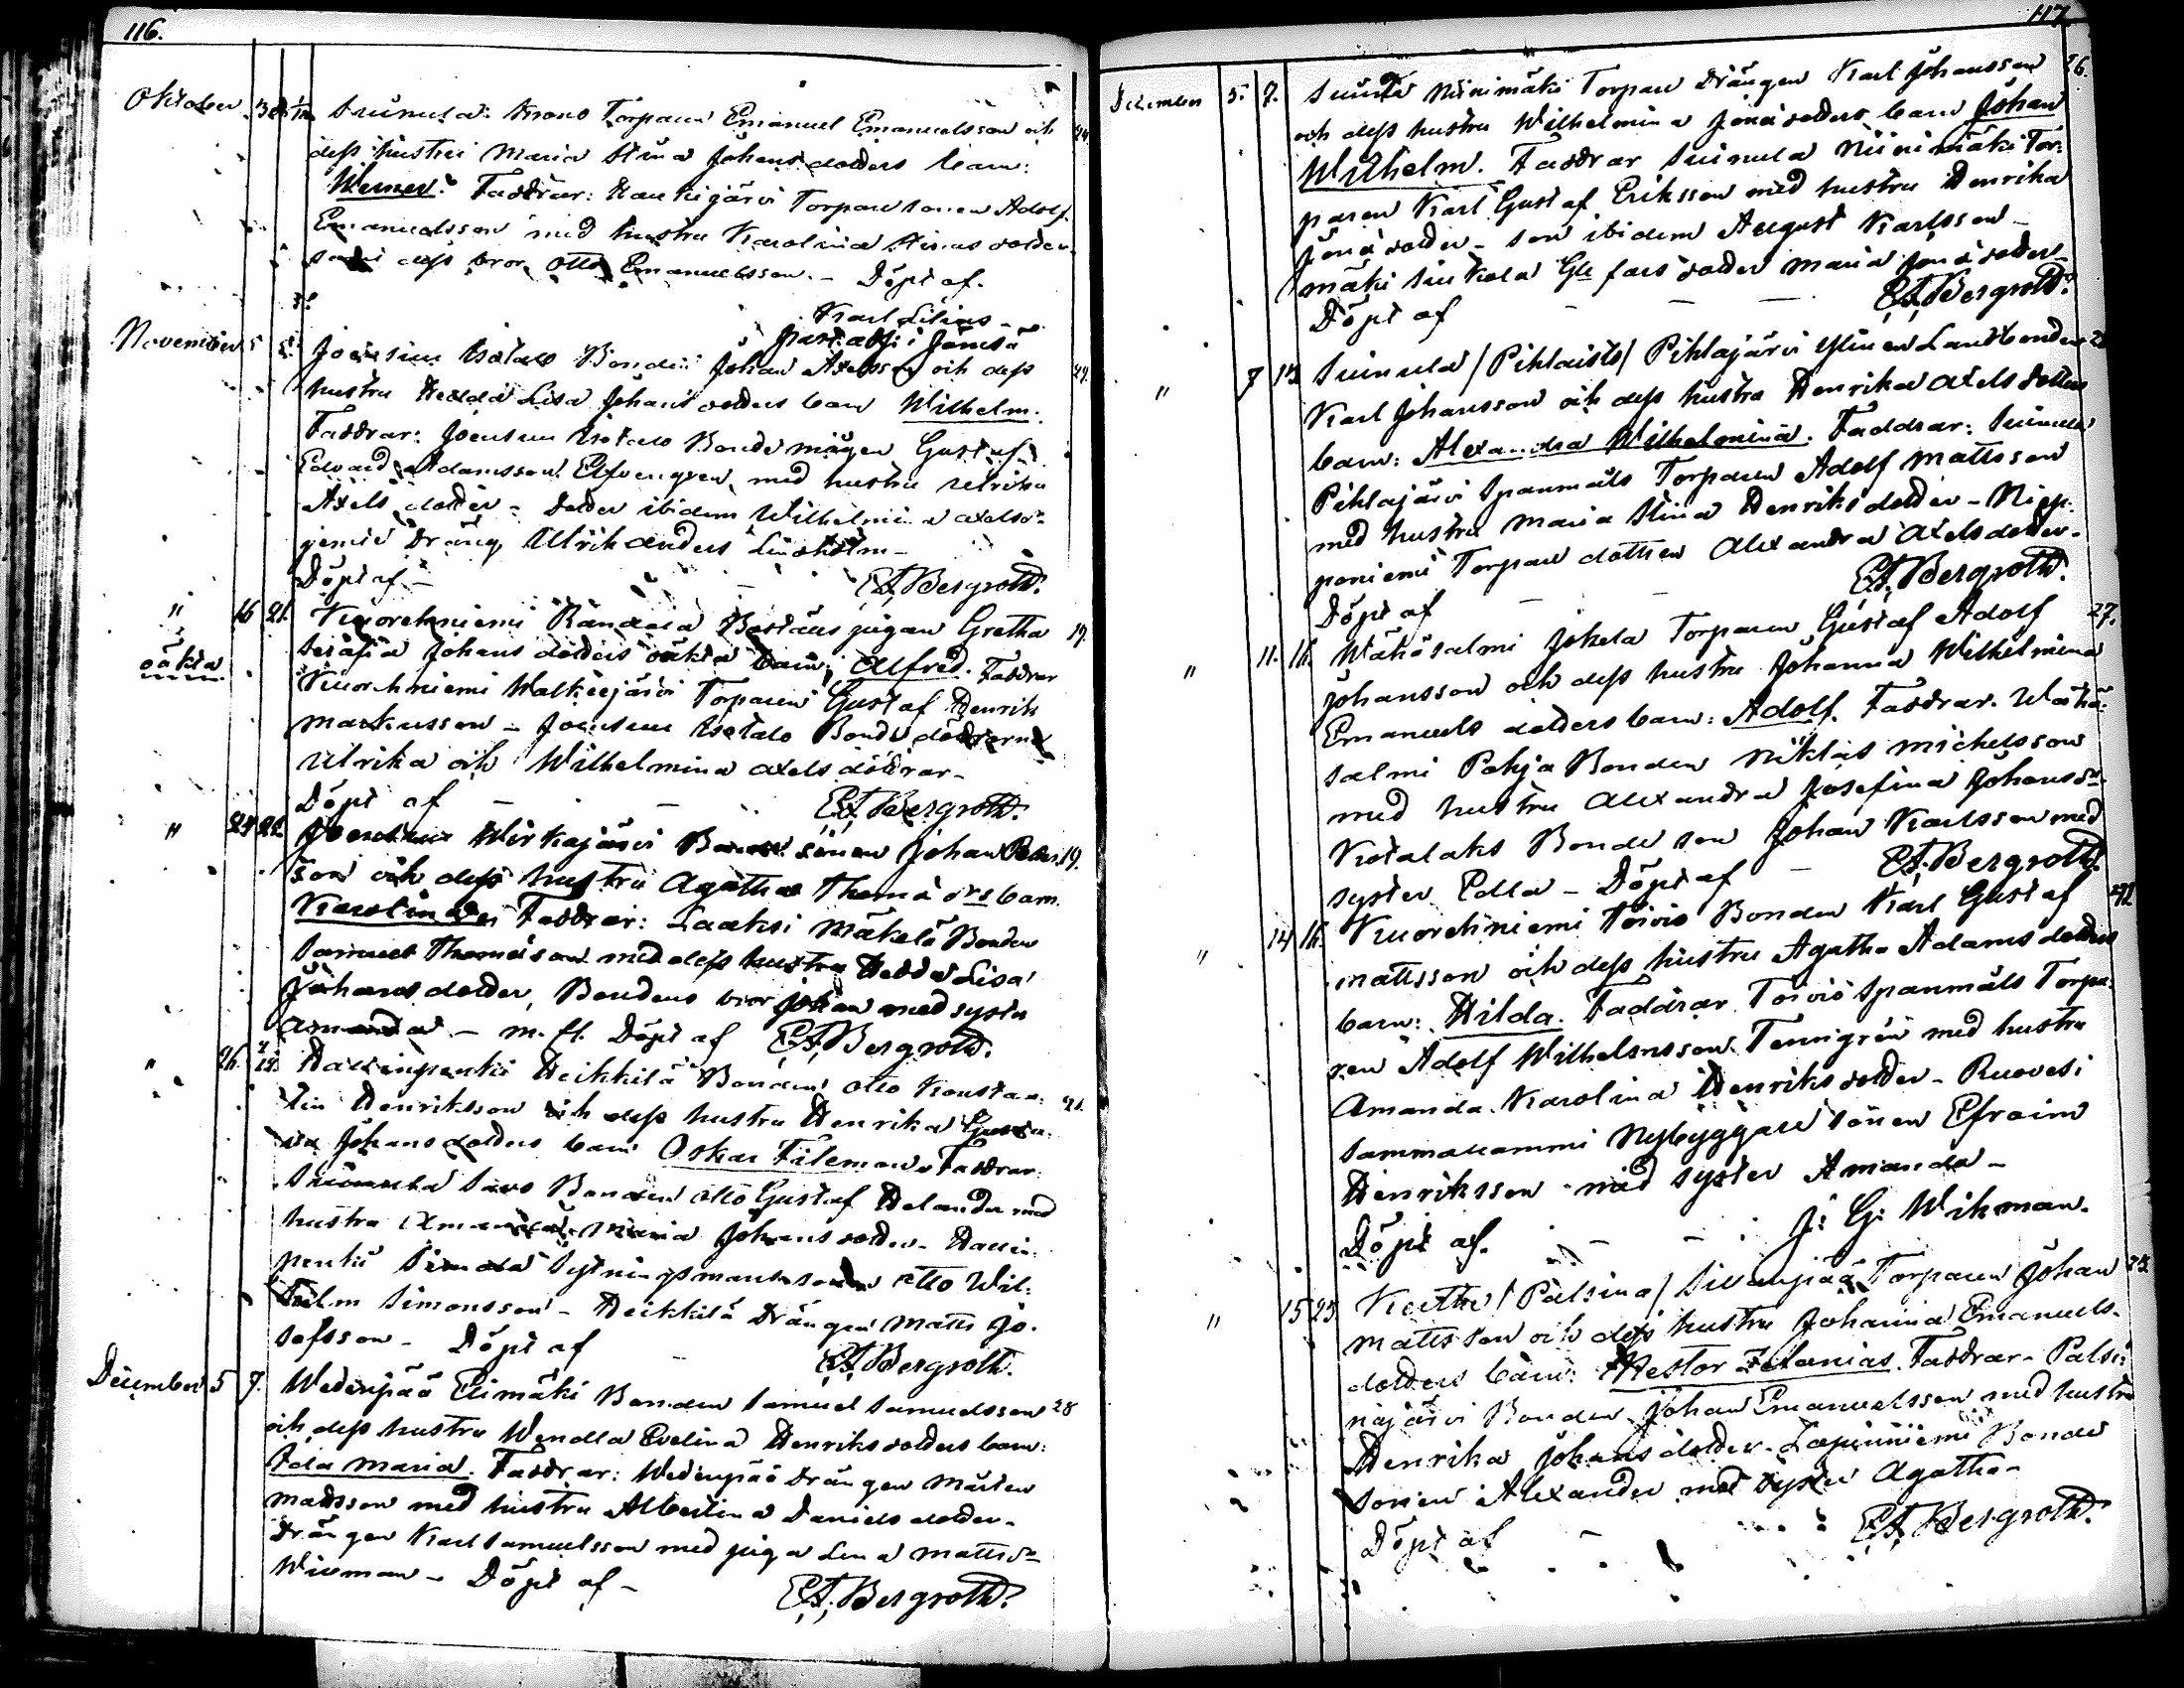 116.
Oktober 30 Suinula: Krono Torparen Emanuel Emanuelsson och
dess hustru Maria Stina Johansdotters barn:
Werner. Faddrar: Haukijärvi Torpare sonen Adolf
Emanuelsson med hustru Karolina
samt dess bror Otto Emanuelsson. - Döpt af.
Karl Lilius
past. adj: i Jämsä
November 5 Joensuu Isotalo Bonden Johan Axelsson och dess
hustru Hedda Lisa Johansdotters barn Wilhelm.
Faddrar: Joensuu Isotalo Bonde mågen Gustaf
Edvard Adamsson Elfvengren med hustru Ulrika
Axelsdotter - Dotter ibidem Wilhelmina Axelsdr
Dräng Ulrik Anders Lindholm -
Döpt af - E.A. Bergroth.
" 16 21. Kuorehniemi Rändälä pigan Gretha 19.
oäkta Serafia Johansdotters oäkta barn: Alfred. Faddrar
Kuorehniemi Walkeejärvi Torparen Gustaf Henrik
Markusson - Joensuu Isotalo Bonde döttrarne
Ulrika och Wilhelmina Axelsdöttrar -
Döpt af - - E.A. Bergroth.
" 24 Joensuu Wirkajärvi sonen Johan 19.
son och dess hustru Agatha Thomædrs barn.
Karolina. Faddrar: Laaksi Mäkelä Bonden
Samuel Thomasson med dess hustru Hedda Lisa
Johansdotter, Bondens bror Johan med syster
Amanda - m. fl. Döpt af E.A. Bergroth.
" 26. Hallinpenkki Heikkilä Bonden Otto Konstan-
tin Henriksson och dess hustru Henrika
Johansdotters barn Oskar Fileman. Faddrar.
Suinula Savo Bonden Otto Gustaf Helander med
hustru Amanda Maria Johansdotter - Hallin-
penkki Simola Sytningsmans sonen Otto Wil-
helm Simonsson - Heikkilä Drängen Matts Jo-
sefsson - Döpt af - E.A. Bergroth.
December 5 7. Wedenpää Elimäki Bonden Samuel Samuelsson 28
och dess hustru Wendla Evelina Henriksdotters barn:
Ida Maria. Faddrar: Wedenpää Drängen Mårten
Mattsson med hustru Albertina Danielsdotter -
Drängen Karl Samuelsson med piga Lena Mattsdr
Wikman - Döpt af - E.A. Bergroth.
117
December 5. 7. Suinula Niinimäki Torpare Drängen Karl Johansson 26.
och dess hustru Wilhelmina Jonædotters barn Johan
Wilhelm. Faddrar Suinula Niinimäki Tor-
paren Karl Gustaf Eriksson med hustru Henrika
Jonædotter - son ibidem August Karlsson -
mäki Sinkola Gl farsdotter Maria Jonædotter -
Döpt af - - - E.A. Bergroth.
" 7 Suinula /Pihlaisto/ Pihlajärvi Ylinen Landbonden
Karl Johansson och dess hustru Henrika Axelsdotters
barn: Alexandra Wilhelmina. Faddrar: Suinula
Pihlajärvi Spanmåls Torparen Adolf Mattsson
med hustru Maria Stina Henriksdotter - Niep-
poniemi Torpare dottren Alexandra Axelsdotter.
Döpt af - - E.A. Bergroth.
" 11. 16. Wähäsalmi Jokela Torparen Gustaf Adolf 27.
Johansson och dess hustru Johanna Wilhelmina
Emanuelsdotters barn: Adolf. Faddrar. Wähä-
salmi Pohja Bonden Niklas Michelsson
med hustru Alexandra Josefina Johansdr
Kotalaks Bonde son Johan Karlsson med
syster Edla - Döpt af - E.A. Bergroth.
" 14 16. Kuorehniemi Toivio Bonden Karl Gustaf 42
Mattsson och dess hustru Agatha Adamsdotters
barn: Hilda. Faddrar Toivio Spanmåls Torpa-
ren Adolf Wilhelmsson Tenngrén med hustru
Amanda Karolina Henriksdotter - Ruovesi
Sammalammi Nybyggare sonen Efraim
Henriksson med syster Amanda -
Döpt af. - - J: G: Wikman.
" 15 25 Keuthu /Palsina/ Sivenpää Torparen Johan
Mattsson och dess hustru Johanna Emanuels-
dotters barn: Nestor Zefanias. Faddrar - Palsi-
najärvi Bonden Johan Emanuelsson med hustru
Henrika Johansdotter. Lapinniemi Bonde
sonen Alexander med syster Agatha -
Döpt af - E.A. Bergroth.